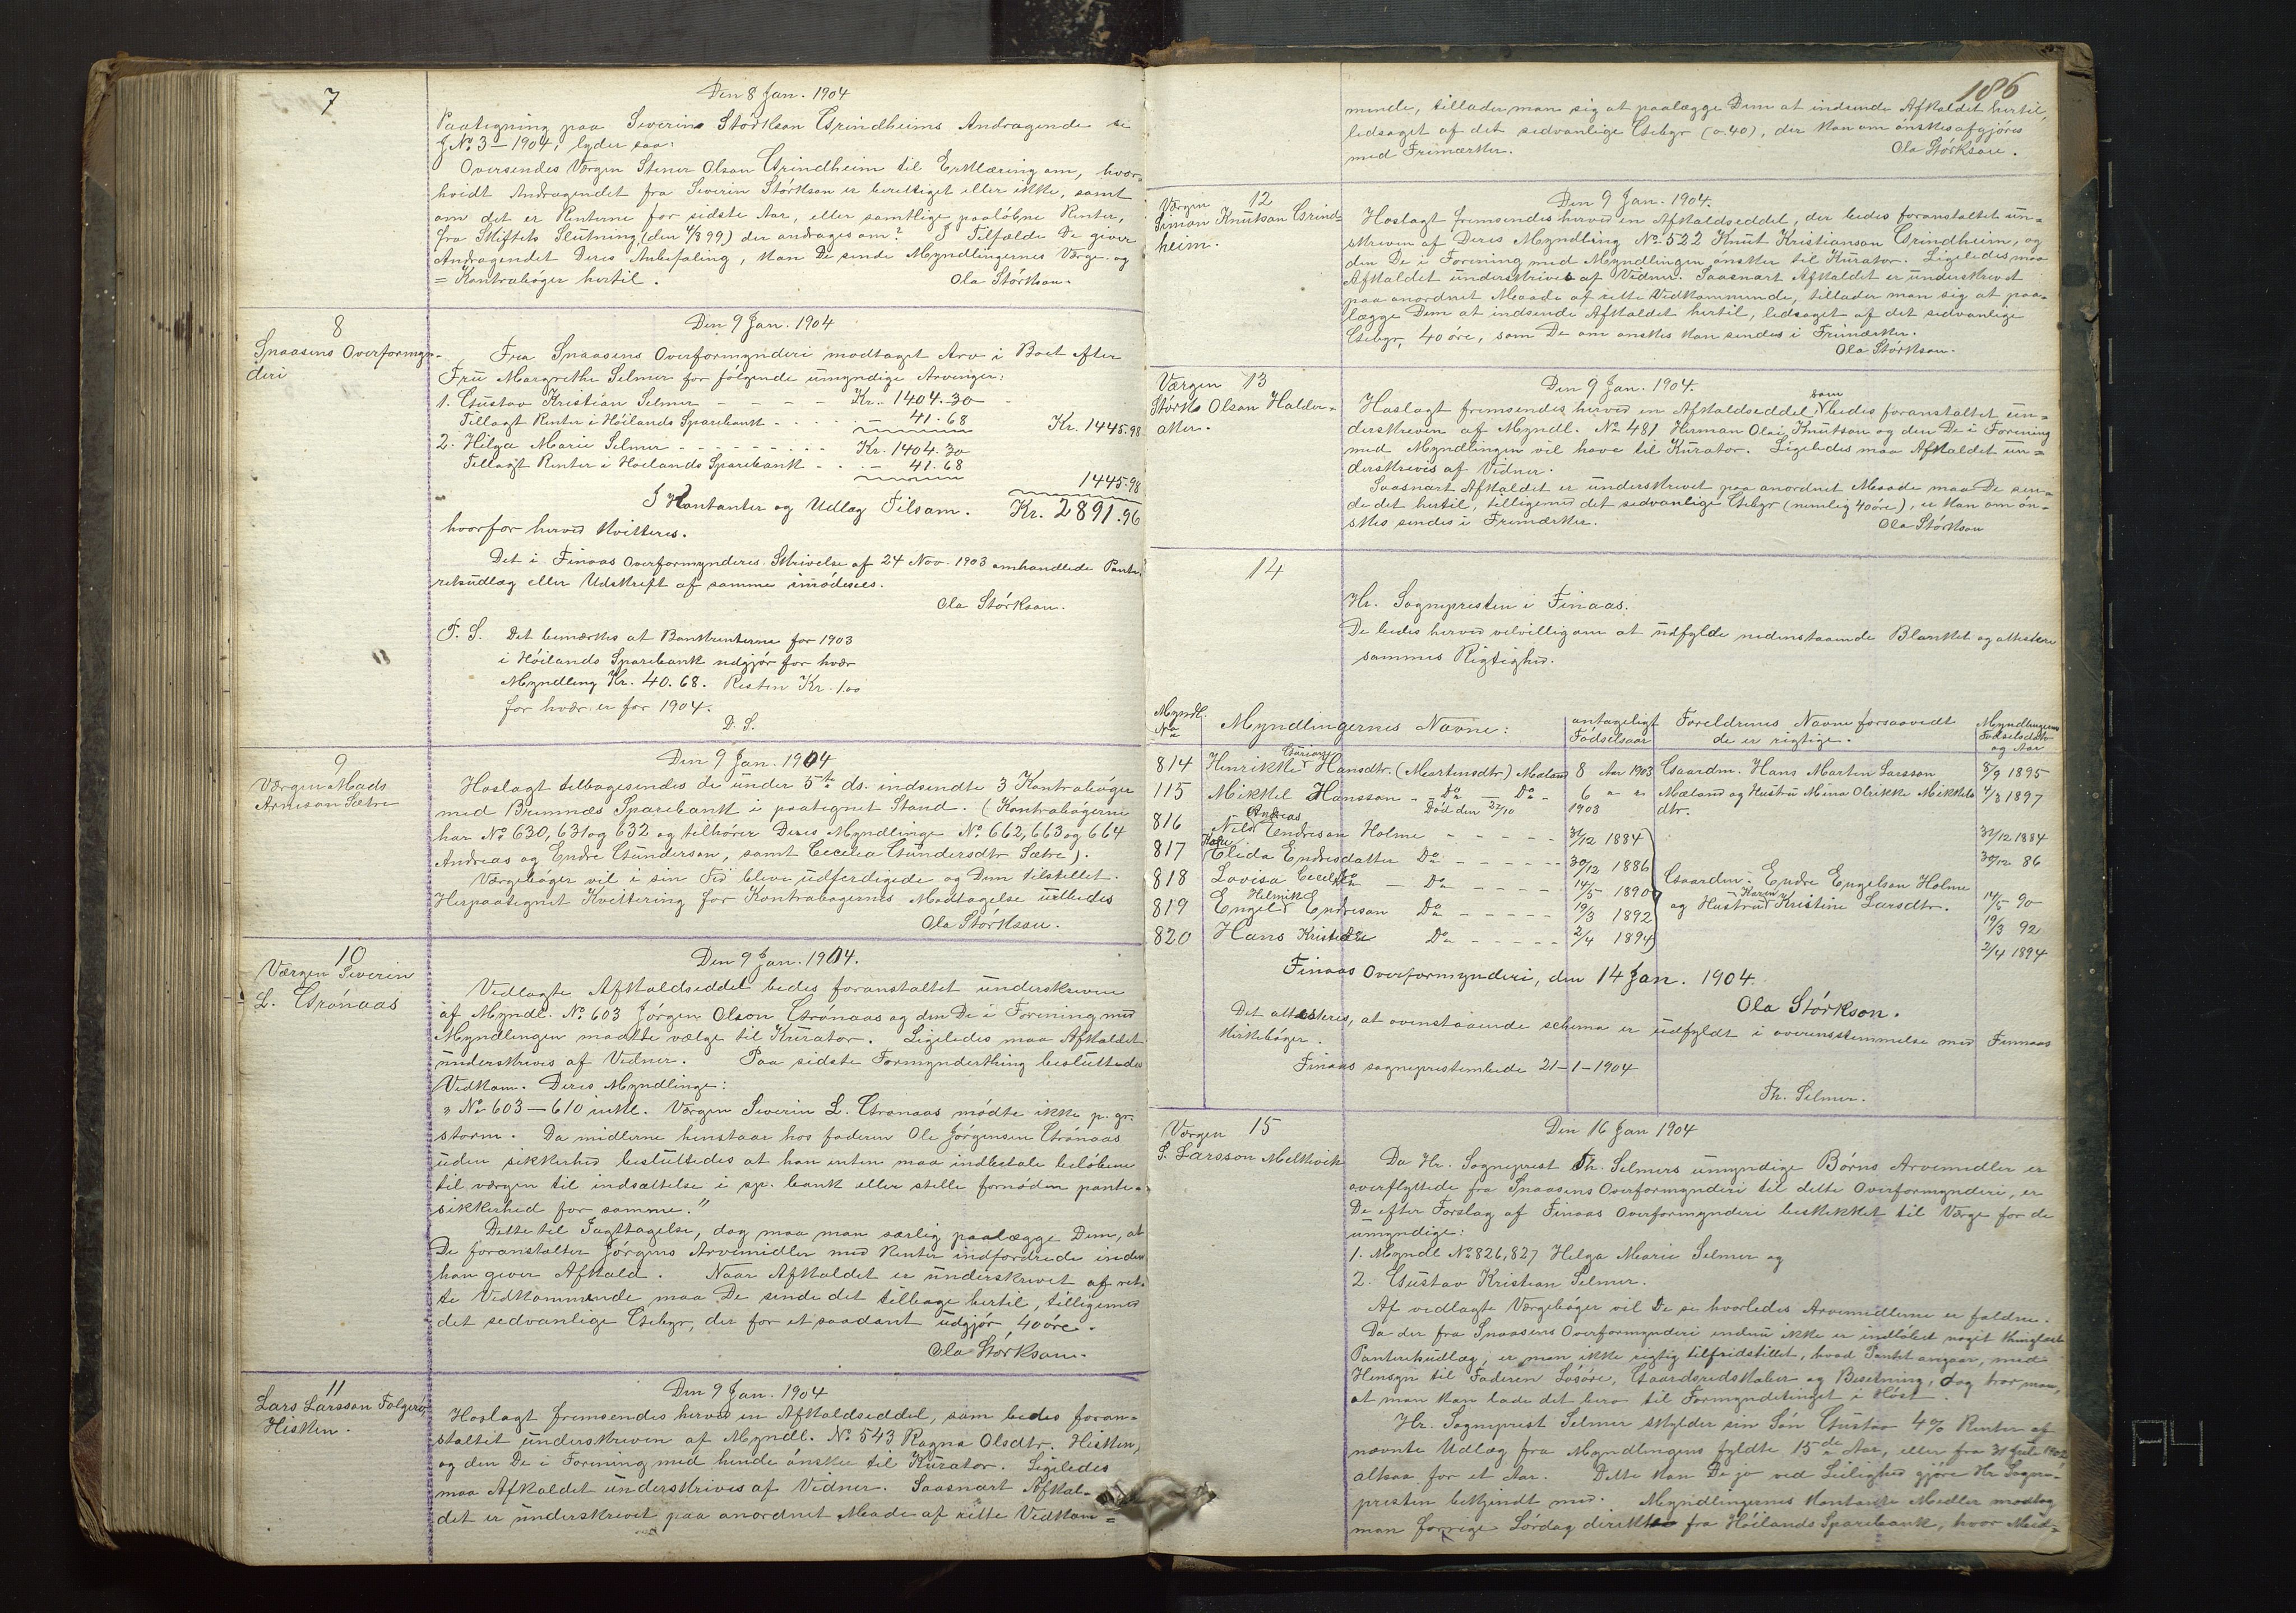 7
Den 8 Jan. 1904
Paategning paa Severin Störkson Grindheims Andragende se
J No. 3 – 1904, lyder saa:
Oversendes Værgen Stener Olson Grindheim til Erklæring om, hvor-
hvidt Andragendet fra Severin Störkson er berettiget eller ikke, samt
om det er Renterne for sidste Aar, eller samtlige paalöbne Renter,
fra Skiftets Slutning, (den 4/8 99) der andrages om? I Tilfælde De giver
Andragendet Deres Anbefaling, kan De sende Myndlingernes Værge- og
= Kontraböger hertil.
Ola Störkson.
8
Snaasens Overformyn-
deri
Den 9 Jan. 1904
Fra Snaasens Overformynderi modtaget Arv i Boet efter
Fru Margrethe Selmer for fölgende umyndige Arvinger:
1. Gustav Kristian Selmer - - - - Kr. 1404.30
Tillagt Renter i Höilands Sparebank - - - 41.68 Kr. 1445.98
2. Helga Marie Selmer - - - - - Kr. 1404.30
Tillagt Renter i Höilands Sparebank - - - 41.68
1445.98
I Kontanter og Udlæg Tilsam. Kr. 2891.96
hvorfor herved kvitteres.
Det i Finaas Overformynderis Skrivelse af 24 Nov. 1903 omhandlede Pante-
retsudlæg eller Udskrift af samme imödesees.
Ola Störkson.
F. S. Det bemærkes at Bankrenterne for 1903
i Höilands Sparebank udgjör for hver
Myndling Kr. 40.68. Resten Kr. 1.00
for hver er for 1904.
D. S.
9
Værgen Mads
Arneson Sætre
Den 9 Jan. 1904
Hoslagt tilbagesendes de under 5te ds. indsendte 3 Kontraböger
med Bremnes Sparebank i paategnet Stand. (Kontrabögerne
har No 630, 631 og 632 og tilhörer Deres Myndlinge No 662, 663 og 664
Andreas og Endre Gunderson, samt Cecelia Gundersdtr Sætre).
Værgeböger vil i sin Tid blive udferdigede og Dem tilstillet.
Herpaategnet Kvittering for Kontrabogernes Modtagelse udbedes
Ola Störkson.
10
Værgen Severin
L. Grönaas
Den 9 Jan. 1904.
Vedlagte Afkaldseddel bedes foranstaltet underskreven
af Myndl. No 603 Jörgen Olson Grönaas og den De i Forening med
Myndlingen maatte vælge til Kurator. Ligeledes maa Afkaldet
underskrives af Vidner. Paa sidste Formynderthing besluttedes
Vedkom. Deres Myndlinge:
"No 603 – 610 inkl. Værgen Severin L. Gronaas mødte ikke p. gr.
storm. Da midlerne henstaar hos faderen Ole Jörgensen Grönaas
uden sikkerhed besluttedes at han enten maa indbetale belöbene
til værgen til indsættelse i sp. bank eller stille fornöden pante-
sikkerhed for samme."
Dette til Iagttagelse, dog maa man særlig paalægge Dem, at
De foranstalter Jörgens Arvemidler med Renter indfordrede inden
han giver Afkald. Naar Afkaldet er underskrevet af ret-
te Vedkommende maa De sende det tilbage hertil, tilligemed
det sedvanlige Gebyr, der for et saadant udgjör 40 öre.
Ola Störkson.
11
Lars Larsson Folgerö,
Hisken.
Den 9 Jan. 1904
Hoslagt fremsendes herved en Afkaldseddel, som bedes foran-
staltet underskreven af Myndl. No 543 Ragna Olsdtr. Hisken,
og den De i Forening med hende önsker til Kurator. Ligeledes
maa Afkaldet underskrives af Vidner. Saasnart Afkal-
det er underskrevet paa anordnet Maade af rette Vedkom=
186
mende, tillader man sig at paalægge Dem at indsende Afkaldet hertil,
ledsaget af det sedvanlige Gebyr (0.40), der kan om önskes afgjöres
med Frimærker.
Ola Störkson.
12
Værgen
Simon Knutson Grind-
heim.
Den 9 Jan. 1904.
Hoslagt fremsendes herved en Afkaldseddel, der bedes foranstaltet un-
skreven af Deres Myndling No 522 Knut Kristianson Grindheim, og
den De i Forening med Myndlingen önsker til Kurator. Ligeledes maa
Afkaldet underskrives af Vidner. Saasnart Afkaldet er underskrevet
paa anordnet Maade af rette Vedkommende, tillader man sig at paa-
lægge Dem at indsende Afkaldet hertil, ledsaget af det sedvanlige
Gebyr, 40 öre, som De om önskes kan sendes i Frimærker.
Ola Störkson.
13
Værgen
Störk Olson Halder-
aker.
Den 9 Jan. 1904.
Hoslagt fremsendes herved en Afkaldseddel, som bedes foranstaltet un-
derskreven af Myndl. No 481 Herman Olai Knutson og den De i Forening
med Myndlingen vil have til Kurator. Ligeledes maa Afkaldet un-
derskrives af Vidner.
Saasnart Afkaldet er underskrevet paa anordnet Maade maa De sen-
de det hertil, tilligemed det sedvanlige Gebyr (nemlig 40 öre), er kan om ön-
skes sendes i Frimærker.
Ola Störkson
14
Hr. Sognepresten i Finaas.
De bedes herved velvilligen om at udfylde nedenstaaende Blanket og attestere
sammes Rigtighed.
Myndl. No Myndlingernes Navne: antageligt Födselsaar Foreldrenes Navne forsaavidt de er rigtige. Myndlingernes Födselsdato og Aar
814 Henrikke Hansdtr. (Martinsdtr) Mæland 8 Aar 1903 Gaardm. Hans Martin Larsson 8/9 1895
115 Mikkel Hansson - Do - Do - 6 " " Mæland og Hustru Mina Olrikke Mikkels 4/3 1897
Död den 27/10 1903 dtr.
816 Nils Andreas Endreson Holme - - - - 31/12 1884 31/12 1884
817 Elida Endresdatter Do - - - - 30/12 1886 30/12 86
818 Lovisa Cecelie Do - Do - - - - 14/5 1890 Gaardm. Endre Engelson Holme 14/5 90
819 Engel Helmik Endreson Do - - - - 19/3 1892 og Hustru Karen Kristine Larsdtr. 19/3 92
820 Hans Kristian Do - - - - 2/4 1894 2/4 1894
Finaas Overformynderi, den 14 Jan. 1904.
Ola Störkson.
Det attesteres, at ovenstaaende schema er udfyldt i overensstemmelse med Finnaas
Kirkeböger.
Finaas sogneprestembede 21–1–1904
Th. Selmer.
15
Værgen
S. Larsson Melkevik
Den 16 Jan 1904
Da Hr. Sogneprest Th. Selmers umyndige Börns Arvemidler er
overflyttede fra Snaasens Overformynderi til dette Overformynderi, er
De efter Forslag af Finaas Overformynderi beskikket til Værge for de
umyndige:
1. Myndl No 826, 827 Helga Marie Selmer og
2. Gustav Kristian Selmer.
Af vedlagte Værgeböger vil De se hvorledes Arvemidlerne er faldne.
Da der fra Snaasens Overformynderi endnu ikke er indlöbet noget thinglæst
Panteretsudlæg, er man ikke rigtig tilfridstillet, hvad Pantet angaar, med
Hensyn til Faderen Lösöre, Gaardsredskaber og Besetning, dog tror man,
at man kan lade det bero til Formyndertinget i Höst.
Hr. Sogneprest Selmer skylder sin Sön Gustav 4% Renter af
nævnte Udlæg fra Myndlingens fyldte 15de Aar, eller fra 31 Juli 1902
altsaa for et Aar. Dette kan De jo ved Leilighed gjöre Hr. Sogne-
presten bekjendt med. Myndlingernes kontante Midler modtog
man forrige Lördag direkte fra Höilands Sparebank, hvor Mid-